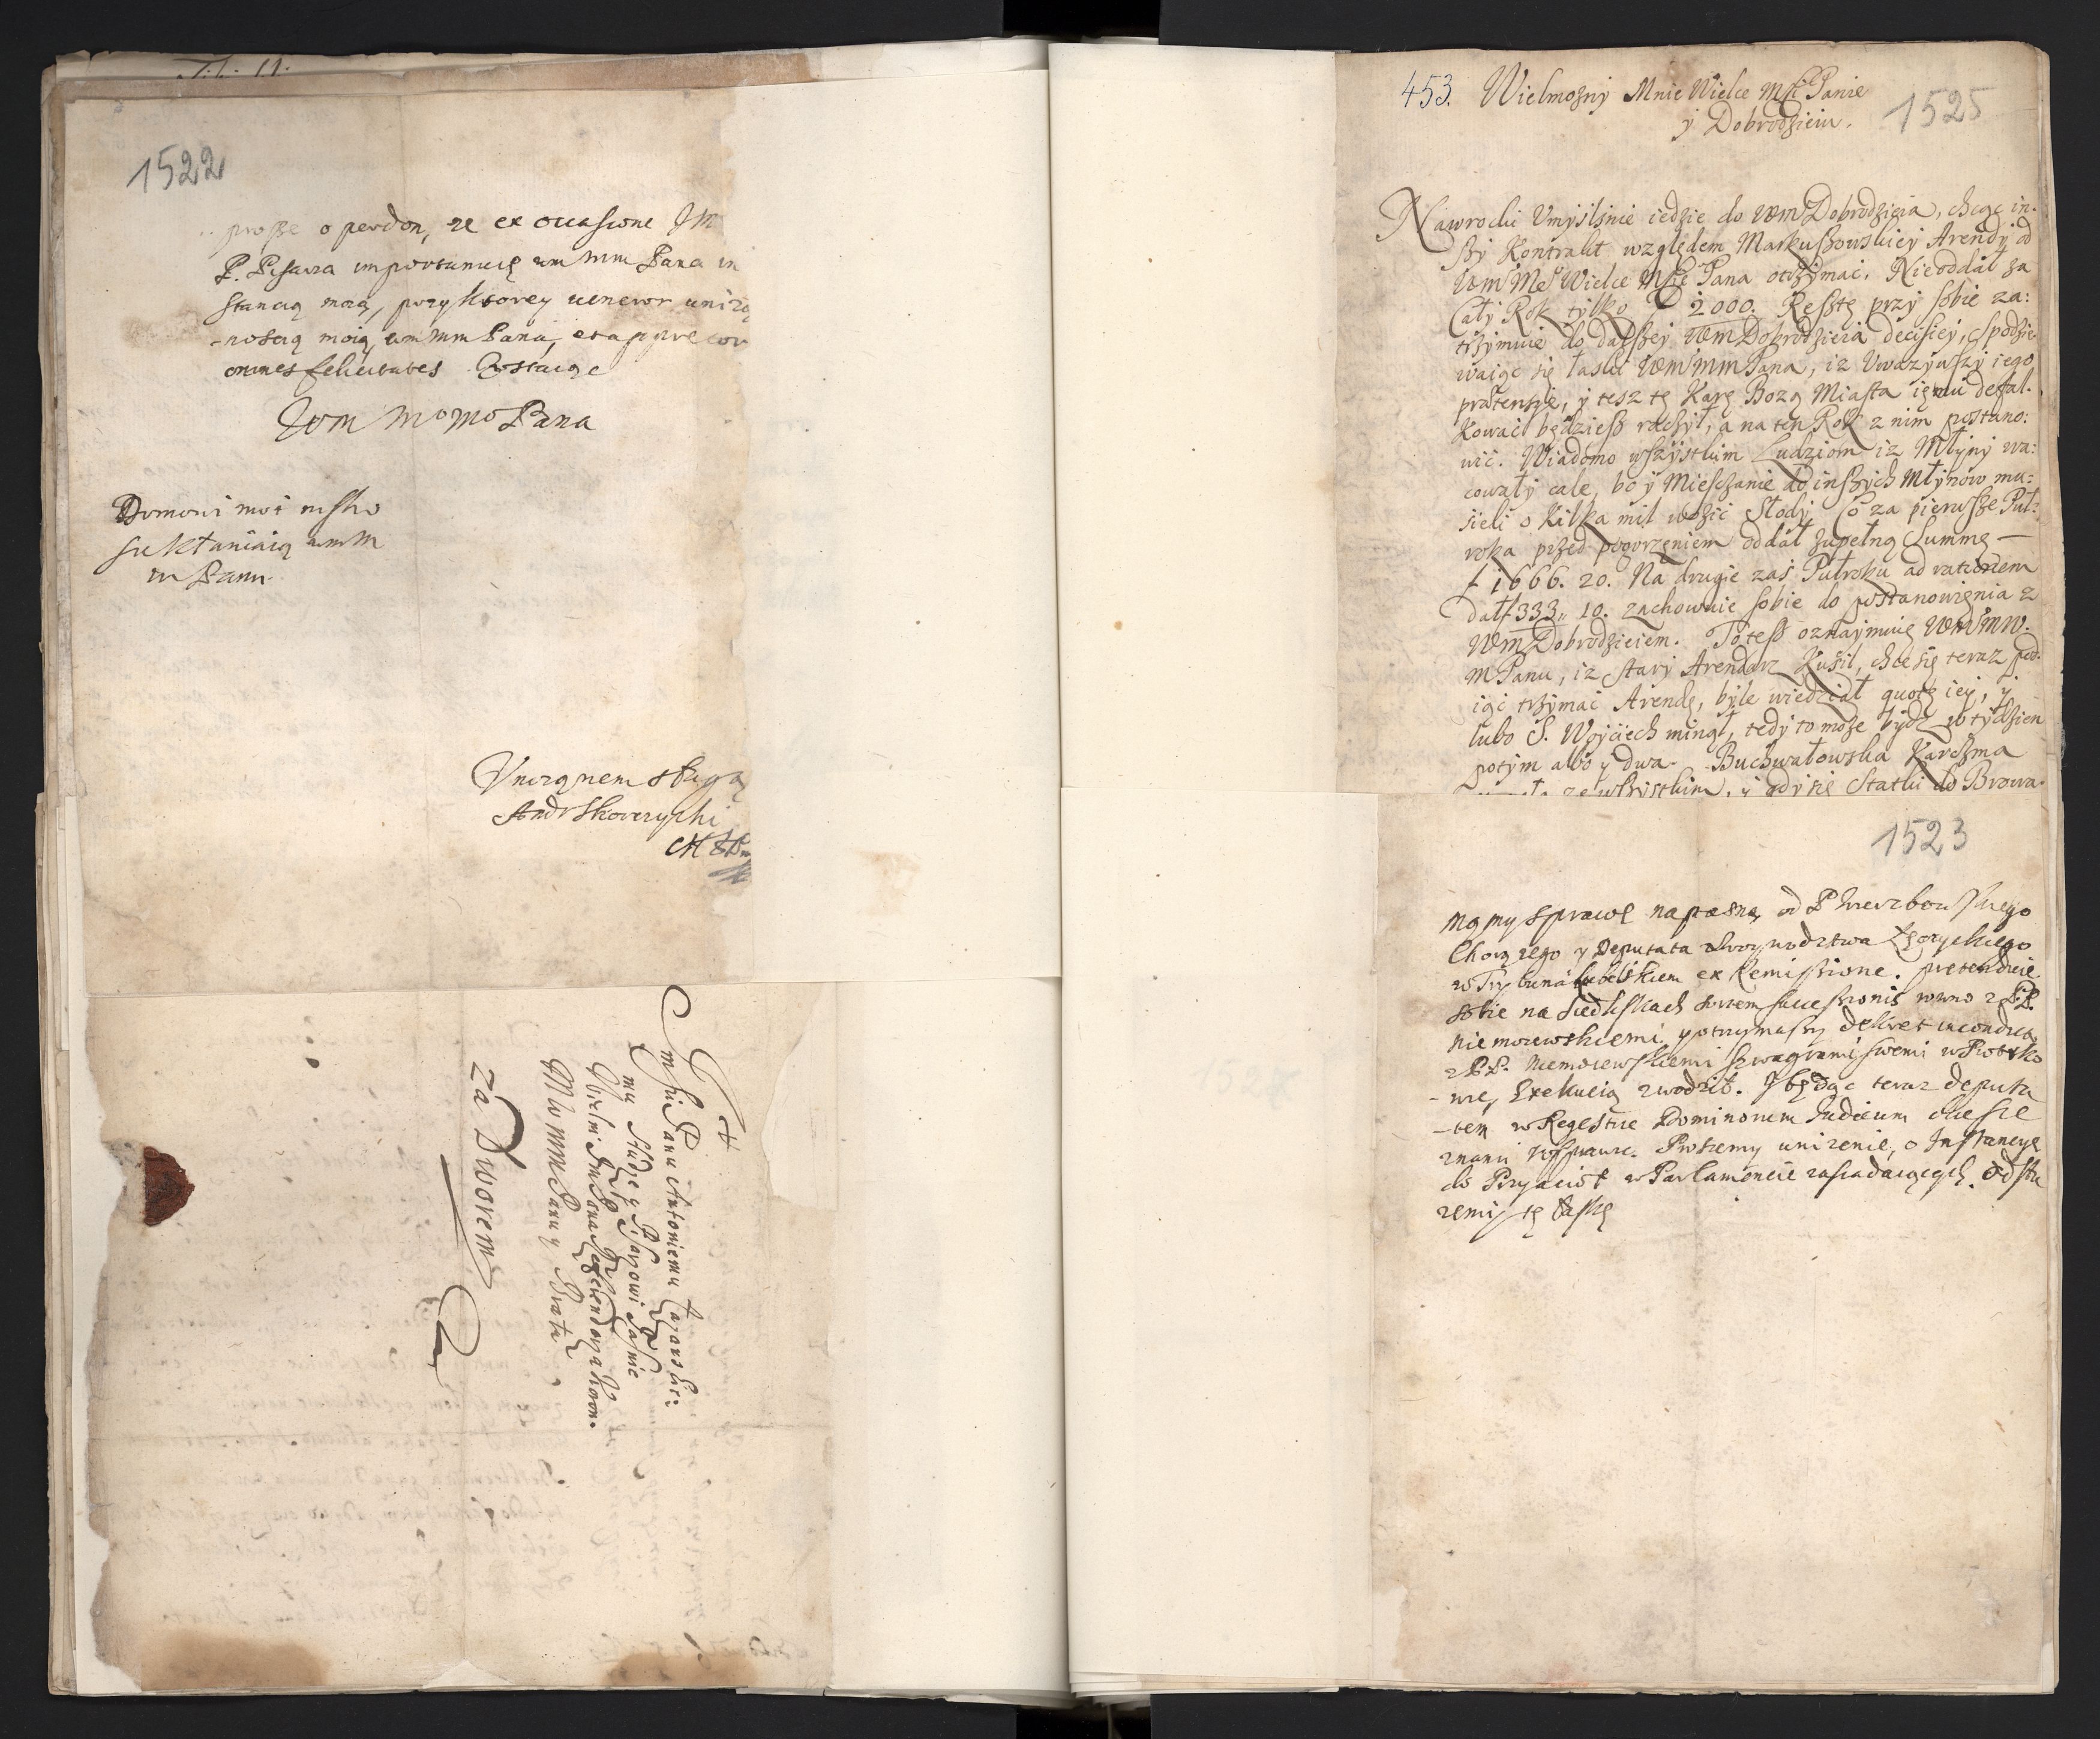 1522
prosze o perdon, ze ex occasione Jm
P. Pisarza importunuię wm mm Pana in
stancią moią, przy ktorey venevor unizo
-noscią moią, wm mm Pana, et apprecor
omnes felicitates Zostaiąc
Wm MoMo Pana
Domowi moi nisko
się kłaniaią wmm
m Panu.
Unizonem sługą
Andr Skorzycki
za Dworem
Jm Panu Antoniemu
mu Sędzie y Pisarowi Jasnie
Wielm Jm Pana Referendarza Koron.
MWMM Panu y Bratu
453. Wielmozny Mnie Wielce Mści Panie
y Dobrodzieiu.
1525
Nawrocki Umyslnie iedzie do WM Dobrodzieia, chcąc in-
szy Kontrakt względem Markuszowskiey Arendy od
Wm Me Wielce Mści Pana otrzymać. Nieoddał za
Cały Rok tylko 2000. Resztę przy sobie za:
trzymuie do dalszey WM Dobrodzieia decisiey, spodzie
waiąc się łaski WM mm Pana, iz Uwazywszy iego
praetensye, y tesz tę Karę Bozą Miasta iemu defal-
kować będziesz raczył, a na ten Rok z nim postano:
wić. Wiadomo wszystkim Ludziom iz Młyny wa:
cowały cale, bo y Mieszczanie do inszych Młynow mu:
sieli o Kilka mil wozić Słody. Co za pierwsze Puł:
roka przed pogorzeniem oddał zupełną Summę —
f 1666. 20. Na drugie zas Pułroku ad rationem
dał f 333. 10. zachowuie sobie do postanowienia z
WM Dobrodzieiem. To tesz oznaymuię WM MW.
M Panu, iz stary Arendarz Kusil, chce się teraz pod-
iąć trzymać Arendę, byle wiedział quotę iey, y
lubo S. Woyciech minął, tedy to moze bydz w tydzien
potym albo y dwa. Buchwałowska Karczma
ze wszystkim, y gdy się Statki do Browa-
1523
mamy sprawę napasną, od P Wierzbowskiego
Chorązego y Deputata Woiewodztwa Łęczyckiego
w Trybunale Lubelskiem ex Remissione. pretenduie
sobie na Siedliskach sortem successionis rowno z PP.
Niemoiewskiemi, y otrzymaszy dekret incondict.
z PP. Niemoiewskiemi szwagrami swemi w Piotrko
-wie, Exekucią zwodził. Będąc teraz deputa
-tem w Regestrze Dominorum Judicum chce sie
z nami rosprawic. Prosiemy unizenie, o Instancyę
do Przyacioł w Parlamencie zasiadaiących. Odsłu
zemy tę łaskę